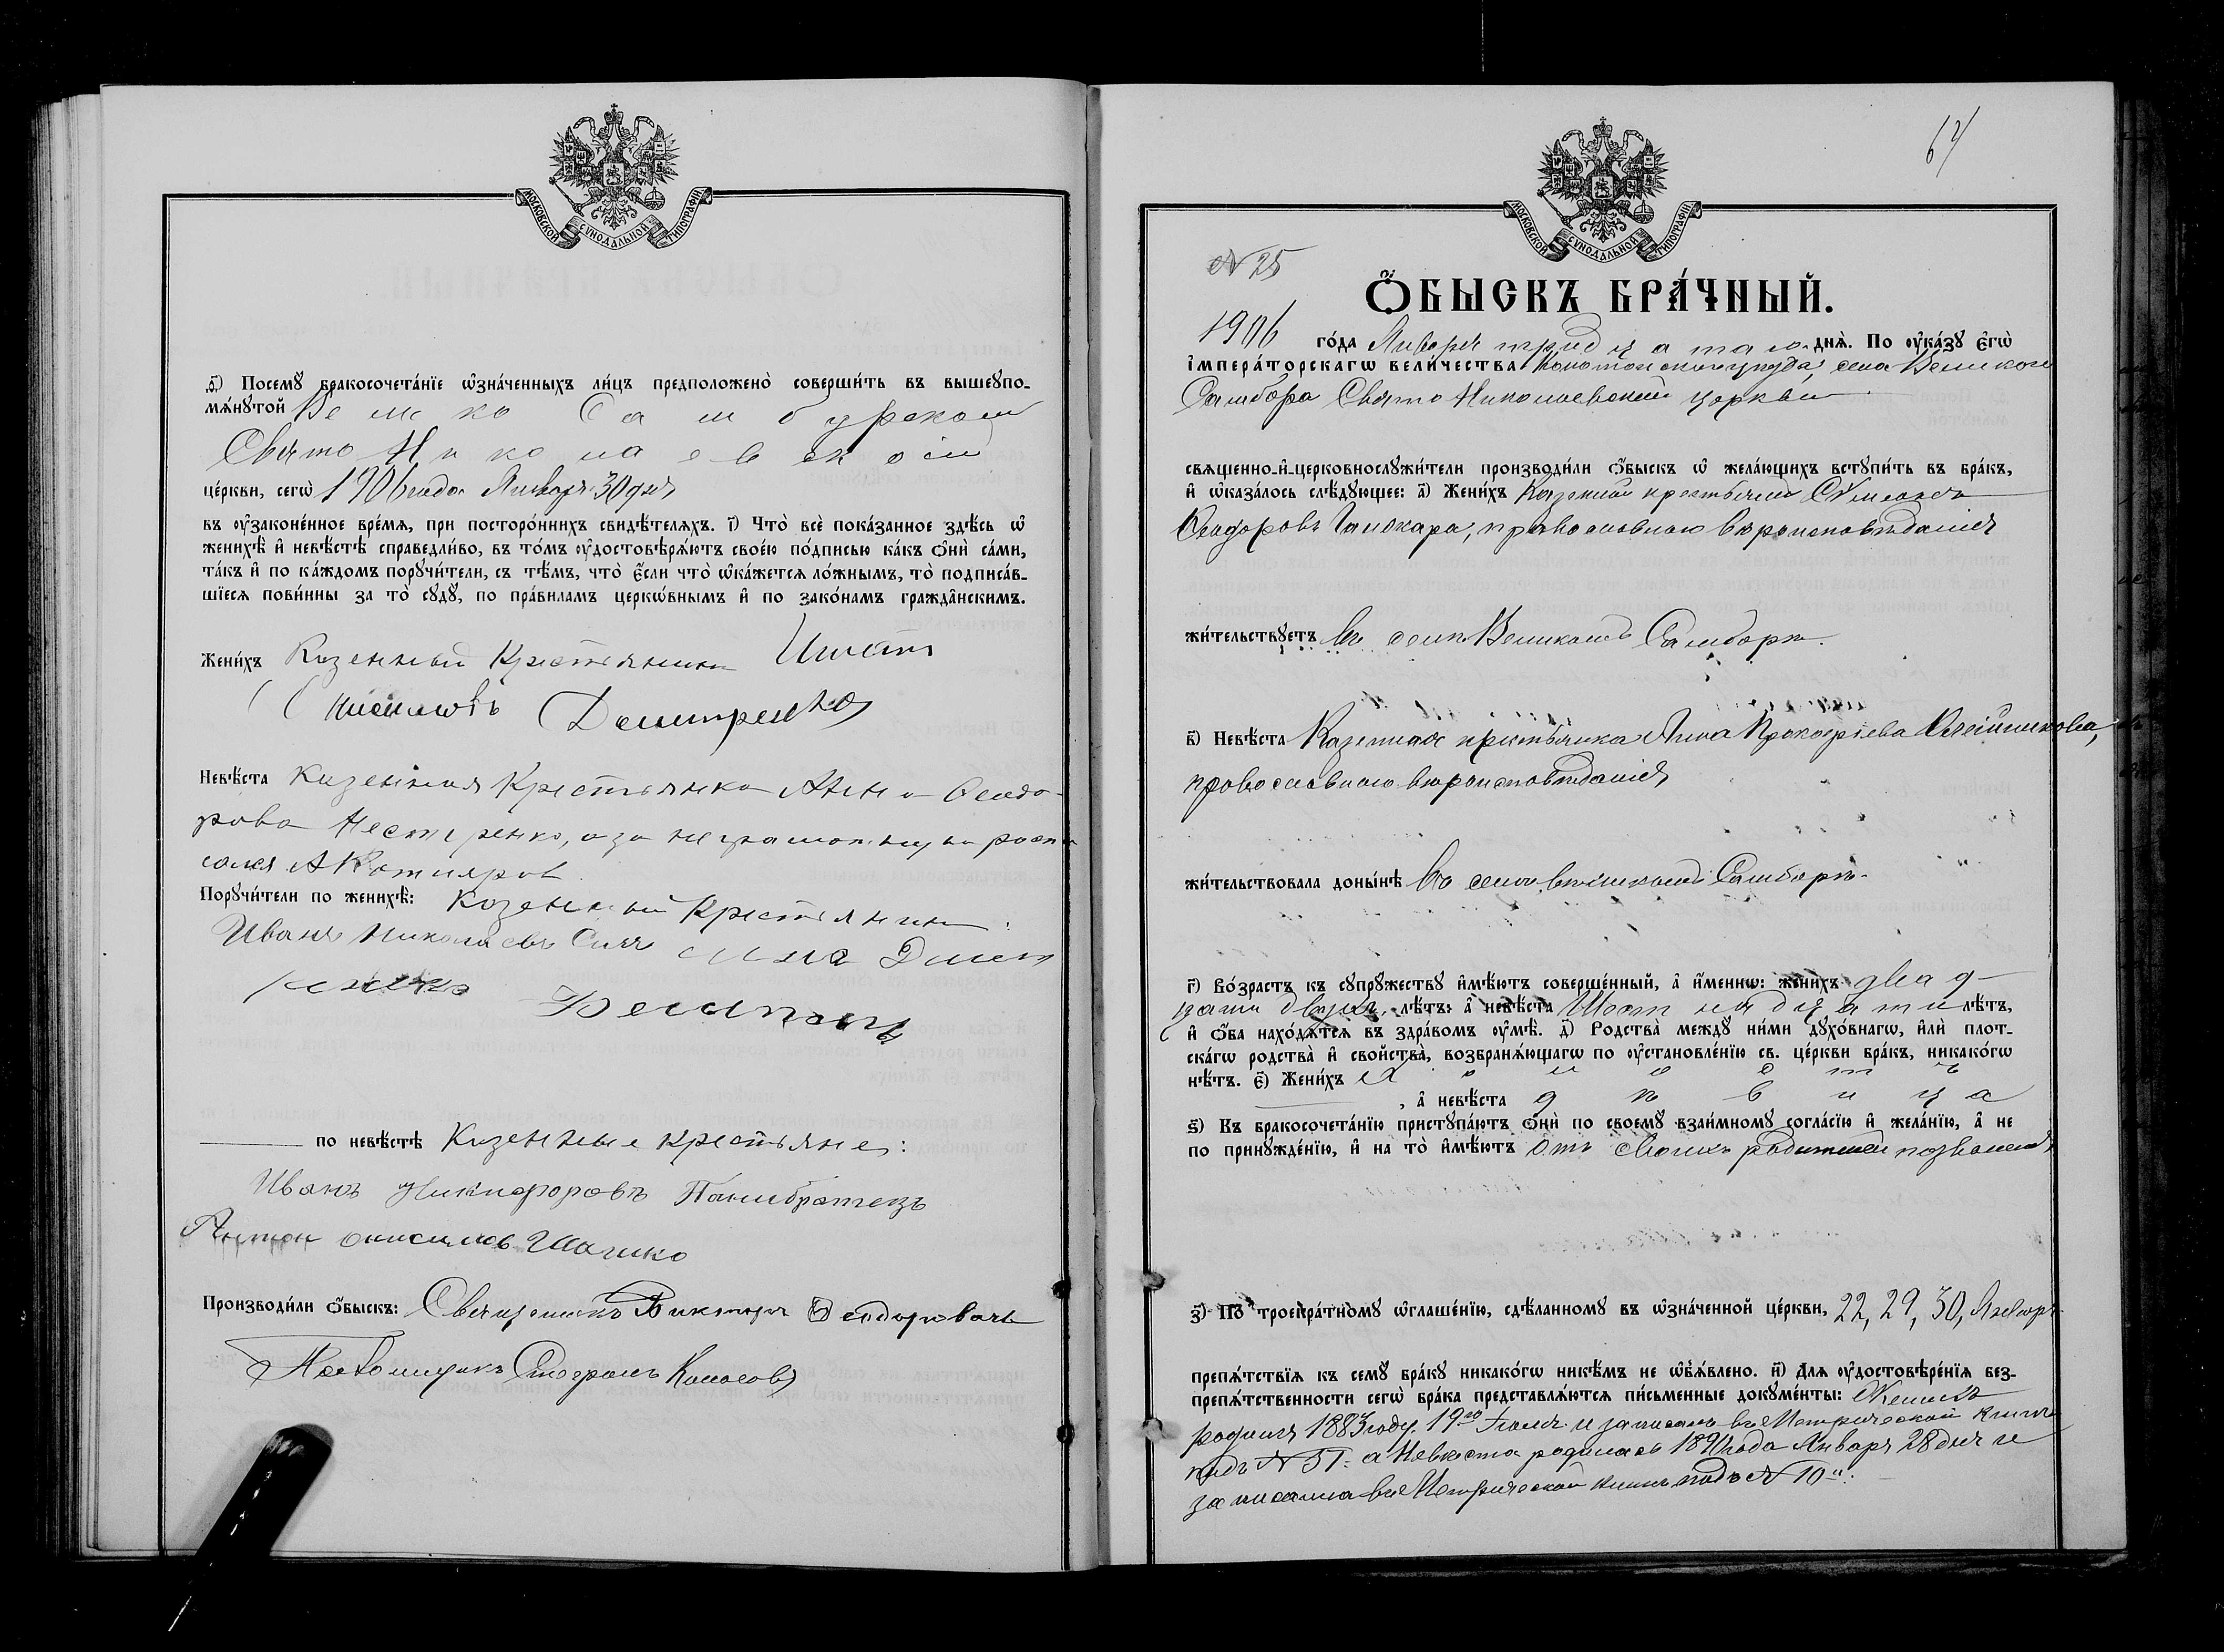 МОСКОВСКОЙ СѴНОДАЛЬНОЙ ТИПОГРАФІИ
д҃) Посемꙋ̀ бракосочета́нїе ѡ҆зна́ченныхъ ли́цъ предположено̀ соверши́ть въ вышеꙋпо-
мѧ́нꙋтой Велико Самбурской
Свято Николаевской
це́ркви, сегѡ̀ 1906 года Января 30 дня
въ ᲂу҆зако́ненное вре́мѧ, при посторо́ннихъ свидѣ́телѧхъ. і҃) Что̀ всѐ пока́занное здѣ́сь ѡ҆
женихѣ̀ и҆ невѣ́стѣ справедли́во, въ то́мъ ᲂу҆достовѣрѧ́ютъ свое́ю по́дписью ка́къ ѻ҆нѝ са́ми,
та́къ и҆ по ка́ждомъ порꙋчи́тели, съ тѣ́мъ, что̀ є҆́сли что̀ ѡ҆ка́жетсѧ ло́жнымъ, то̀ подписа́в-
шїесѧ пови́нны за то̀ сꙋдꙋ̀, по пра́виламъ церкѡ́внымъ и҆ по зако́намъ гражда̑нскимъ.
Жени́хъ Казенный Крестьянинъ Игнат
Дмитренко
Невѣ́ста Казенная Крестьянка Анна Феодо-
рова Нестеренко, а за неграмотную роспи
сался А Котляров
Порꙋчи́тели по женихѣ̀: Козенный Крестьянин:
Иванъ Николаевъ Сичъ
по невѣ́стѣ Казенные крестьяне:
Иванъ Никифоровъ Панибратецъ
Антон Онисимов Шашко
Производи́ли ѻ҆́быскъ: Священникъ Викторъ Ѳеодоровичъ
Псаломщикъ Стефанъ Колосовъ
64
МОСКОВСКОЙ СѴНОДАЛЬНОЙ ТИПОГРАФІИ
№ 25
Ѻ҆́БЫСКЪ БРА́ЧНЫЙ.
1906 го́да Января тридцатаго днѧ̀. По ᲂу҆ка́зꙋ Є҆гѡ̀
І҆мпера́торскагѡ вели́чества Конотопскаго уѣзда, села Великого
Самбора Свято Николаевской церкви
свѧще́нно-и҆-церковнослꙋжи́тели производи́ли ѻ҆́быскъ ѡ҆ жела́ющихъ встꙋпи́ть въ бра́къ,
и҆ ѡ҆каза́лось слѣ́дꙋющее: а҃) Жени́хъ Казенный крестьянинъ Симеонъ
Ѳеодоровъ православнаго вѣроисповѣданія
жи́тельствꙋетъ въ селѣ Великомъ Самборѣ.
в҃) Невѣ́ста Казенная крестьянка Анна Прокофіева Олейникова,
православнаго вѣроисповѣданія
жи́тельствовала доны́нѣ въ селѣ великомъ Самборѣ.
г҃) Во́зрастъ къ сꙋпрꙋ́жествꙋ и҆мѣ́ютъ соверше́нный, а҆ и҆́меннѡ: жени́хъ двад-
цати двухъ лѣ́тъ: а҆ невѣ́ста Шестнадцати лѣ́тъ,
и҆ ѻ҆́ба нахо́дѧтсѧ въ здра́вомъ ᲂу҆мѣ̀. д҃) Родства̀ междꙋ̀ ни́ми дꙋхо́внагѡ, и҆лѝ плот-
ска́гѡ родства̀ и҆ свойства̀, возбранѧ́ющагѡ по ᲂу҆становле́нїю св. це́ркви бра́къ, никако́гѡ
нѣ́тъ. є҃) Жени́хъ холостъ
, а҆ невѣ́ста дѣвица
ѕ҃) Къ бракосочета́нїю пристꙋпа́ютъ ѻ҆нѝ по своемꙋ̀ взаи́мномꙋ согла́сїю и҆ жела́нїю, а҆ не
по принꙋжде́нїю, и҆ на то̀ и҆мѣ́ютъ отъ своихъ родителей позволеніе
з҃) По троекра́тномꙋ ѡ҆глаше́нїю, сдѣ́ланномꙋ въ ѡ҆зна́ченной це́ркви, 22, 29, 30, Января
препѧ́тствїѧ къ семꙋ̀ бра́кꙋ никако́гѡ никѣ́мъ не ѡ҆б̾ѧ́влено. и҃) Длѧ ᲂу҆достовѣре́нїѧ без-
препѧ́тственности сегѡ̀ бра́ка представлѧ́ютсѧ пи́сьменные докꙋме́нты: Женихъ
родился 1883 году 19го Іюля и записанъ въ Метрической книгѣ
подъ № 51. а Невѣста родилась 1890 года Января 28 дня и
записана въ Метрической книгѣ подъ № 10.